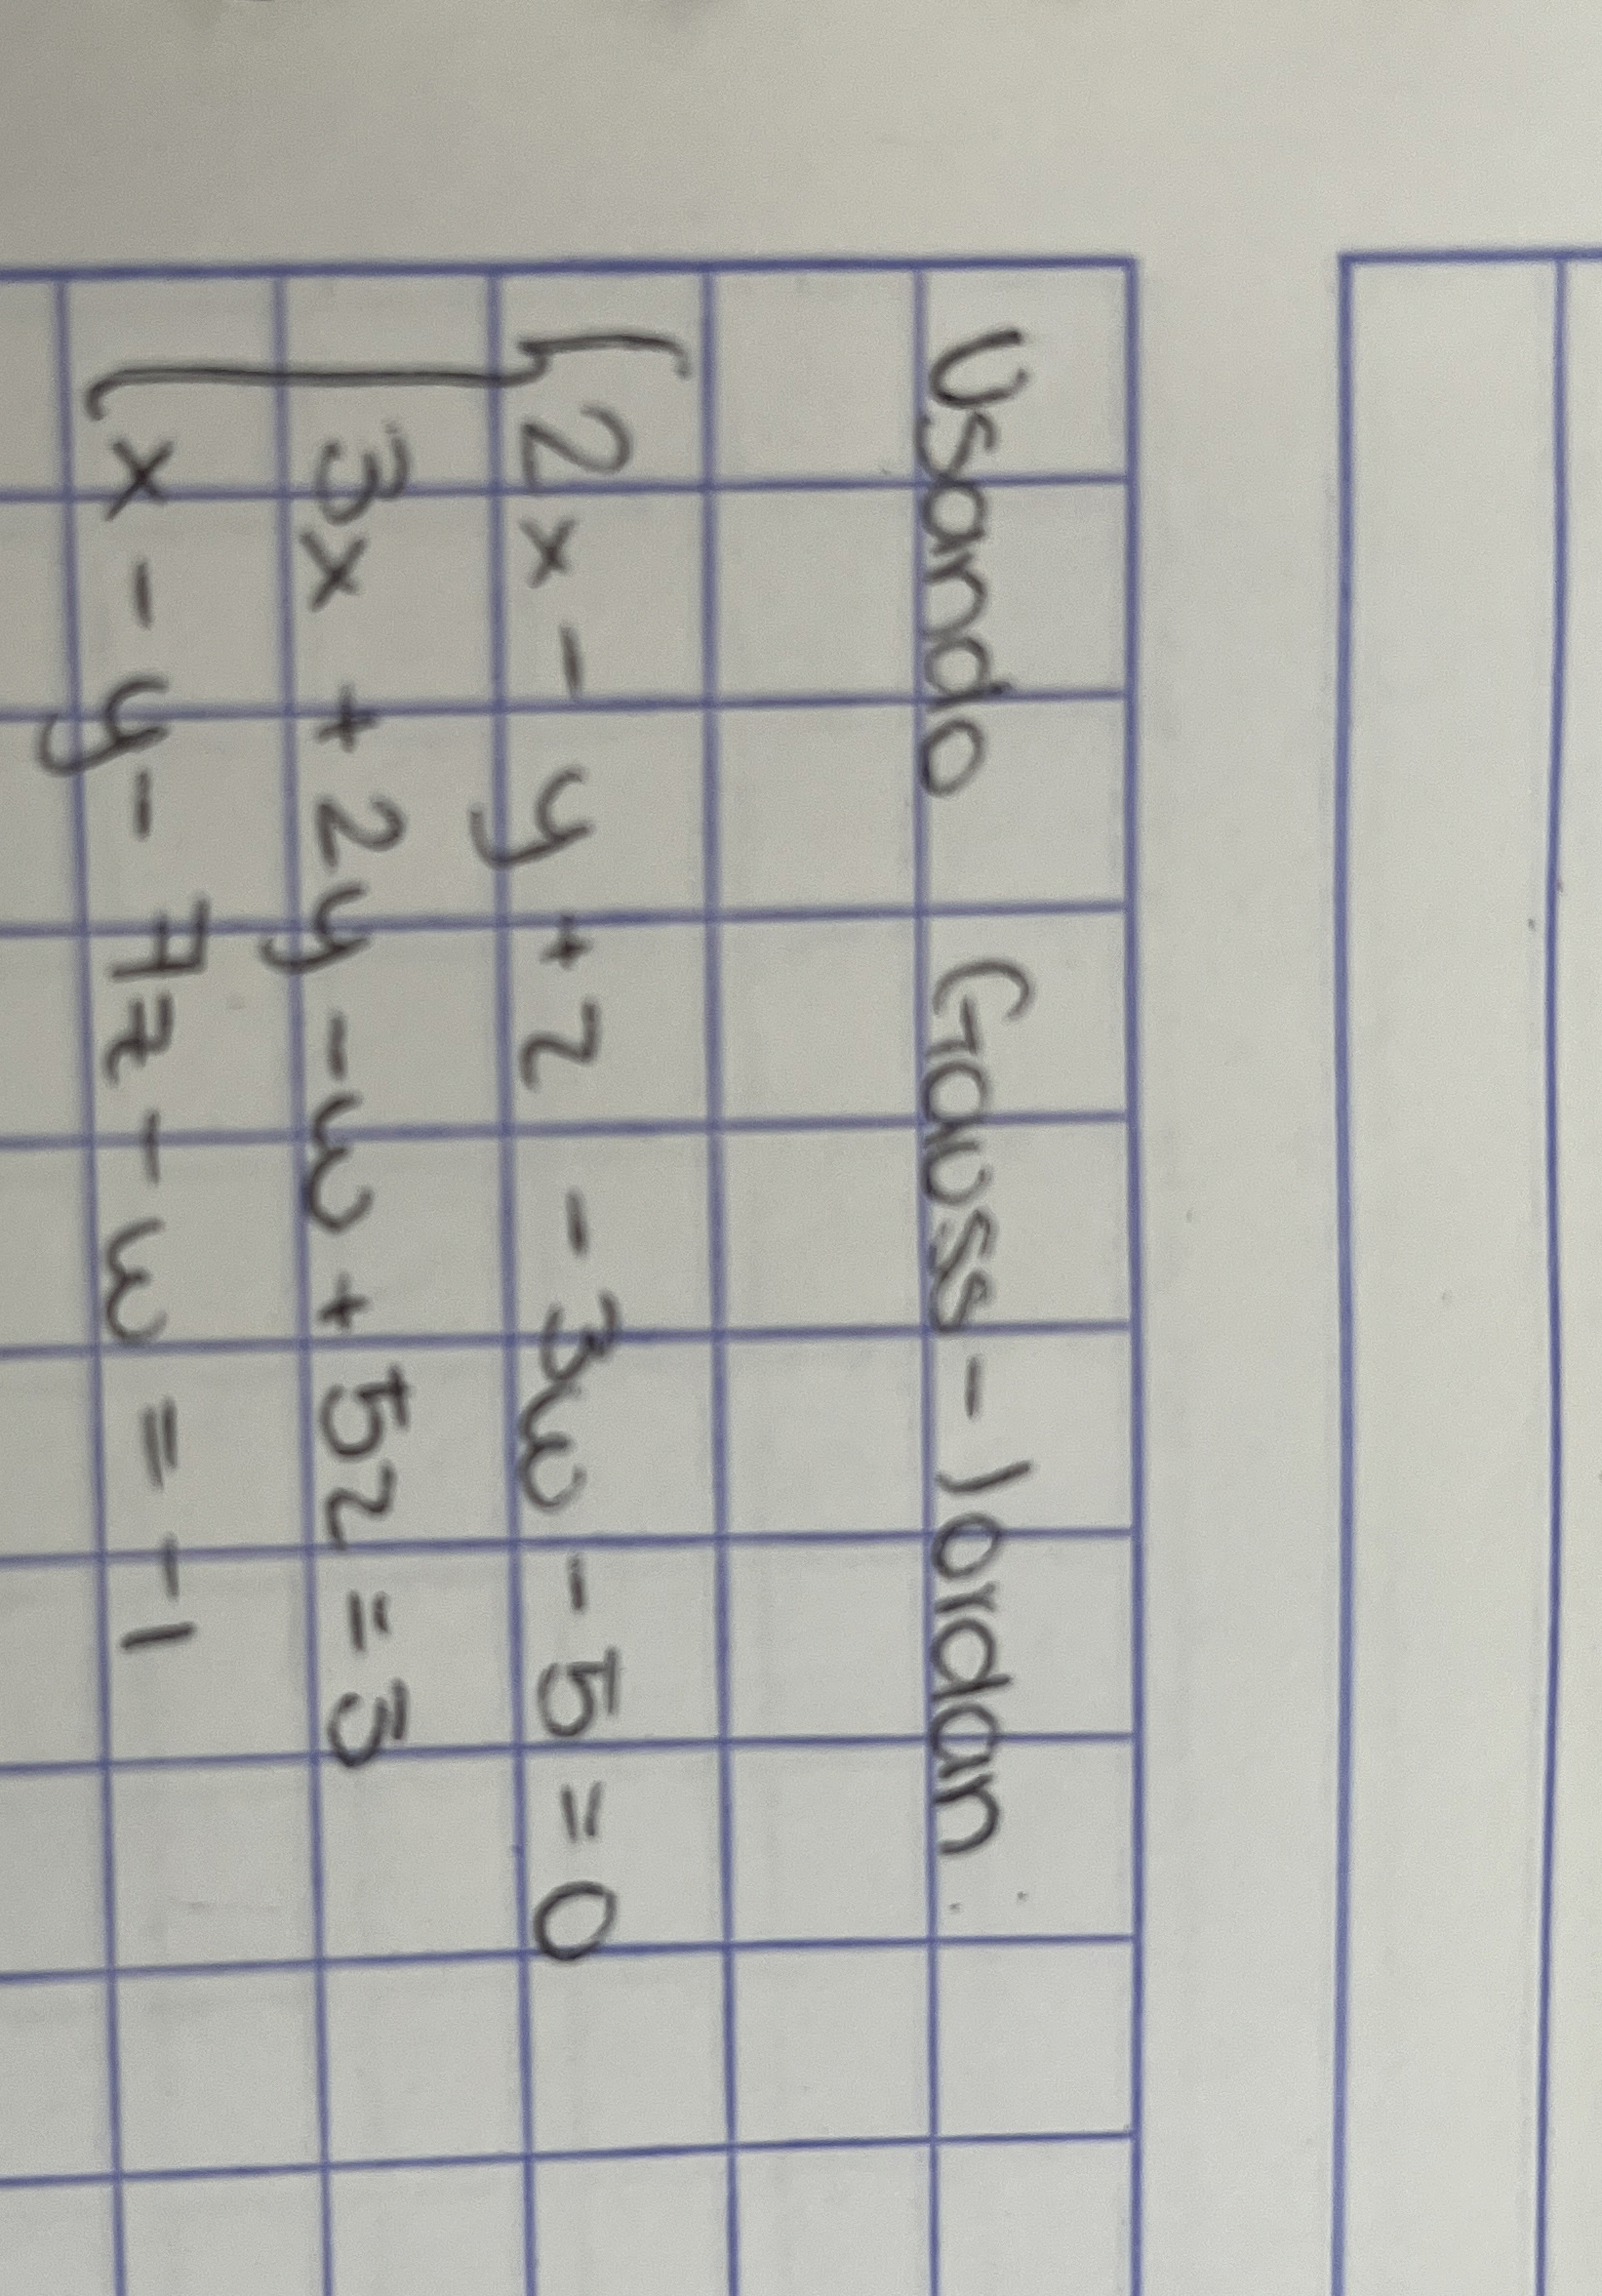 Usando Gauss-Jordan
2x - y + z - 3w - 5 = 0
3x + 2y - w + 5z = 3
x - y - 7z - w = -1